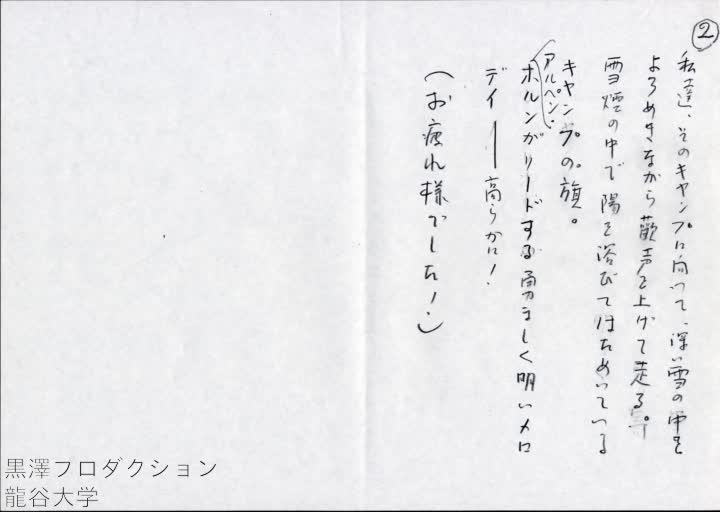 ②
私達、そのキャンプに向って、深い雪の中を
よろめきながら歓声を上げて走る。
雪煙の中で陽を浴びてはためいている
キャンプの旗。
アルペン・
ホルンがリードする勇ましく明いメロ
デイ──高らかに！
（お疲れ様でした！）
黒澤フロダクション
龍谷大学